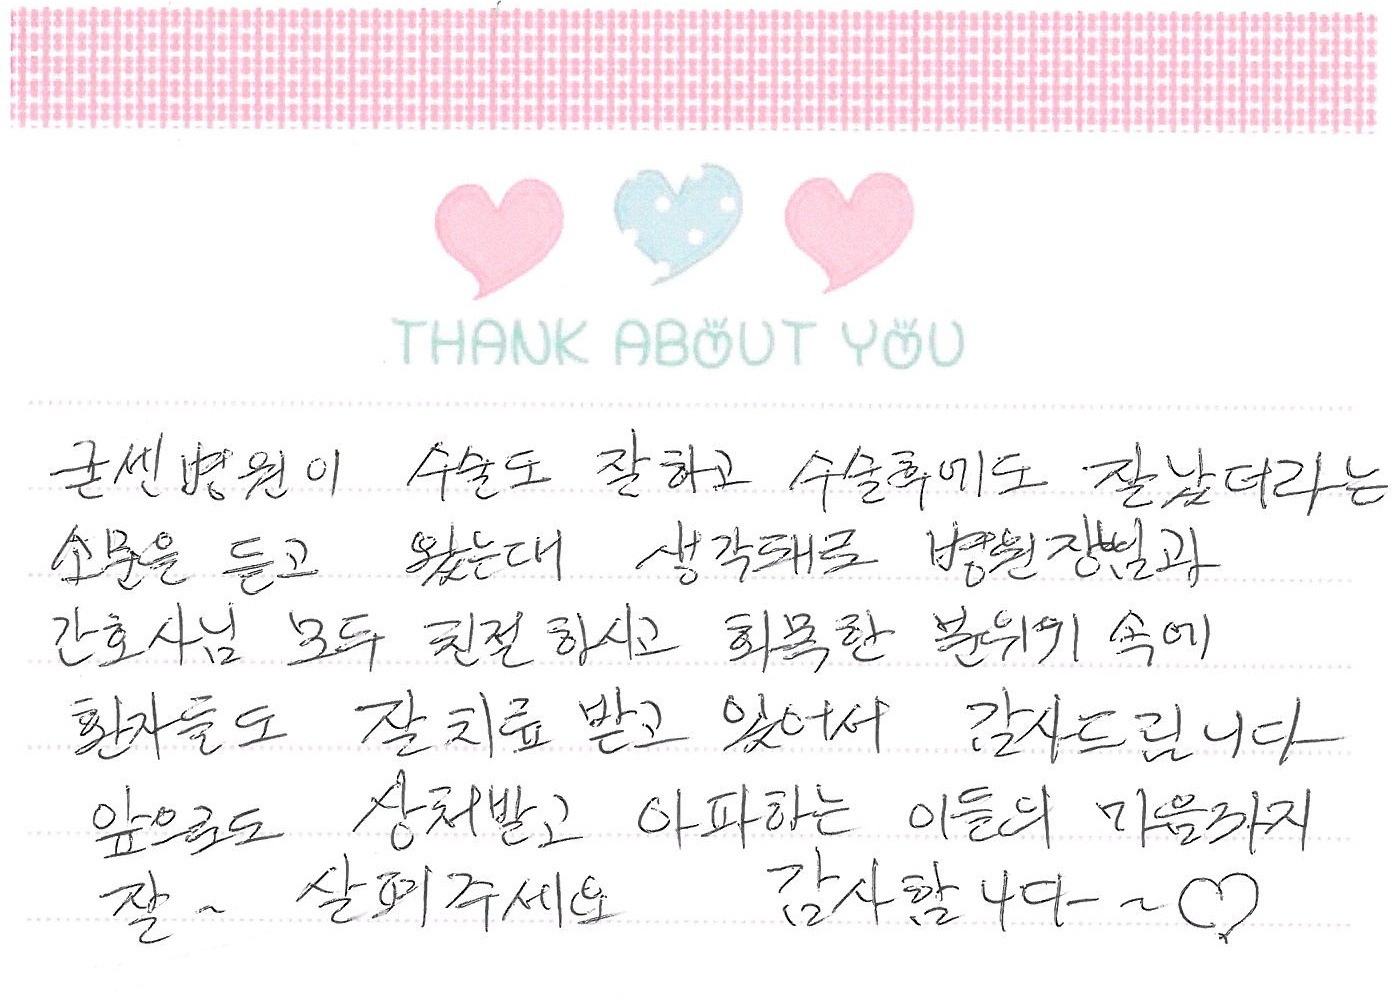 THANK ABOUT YOU
굳센병원이 수술도 잘하고 수술후에도 잘낫더라는
소문을 듣고 왔는대 생각돼로 병원장님과
간호사님 모두 친절하시고 화목한 분위기 속에
환자들도 잘치료 받고 있어서 감사드립니다
앞으로도 상처받고 아파하는 이들의 마음까지
잘~ 살펴주세요 감사합니다~♡